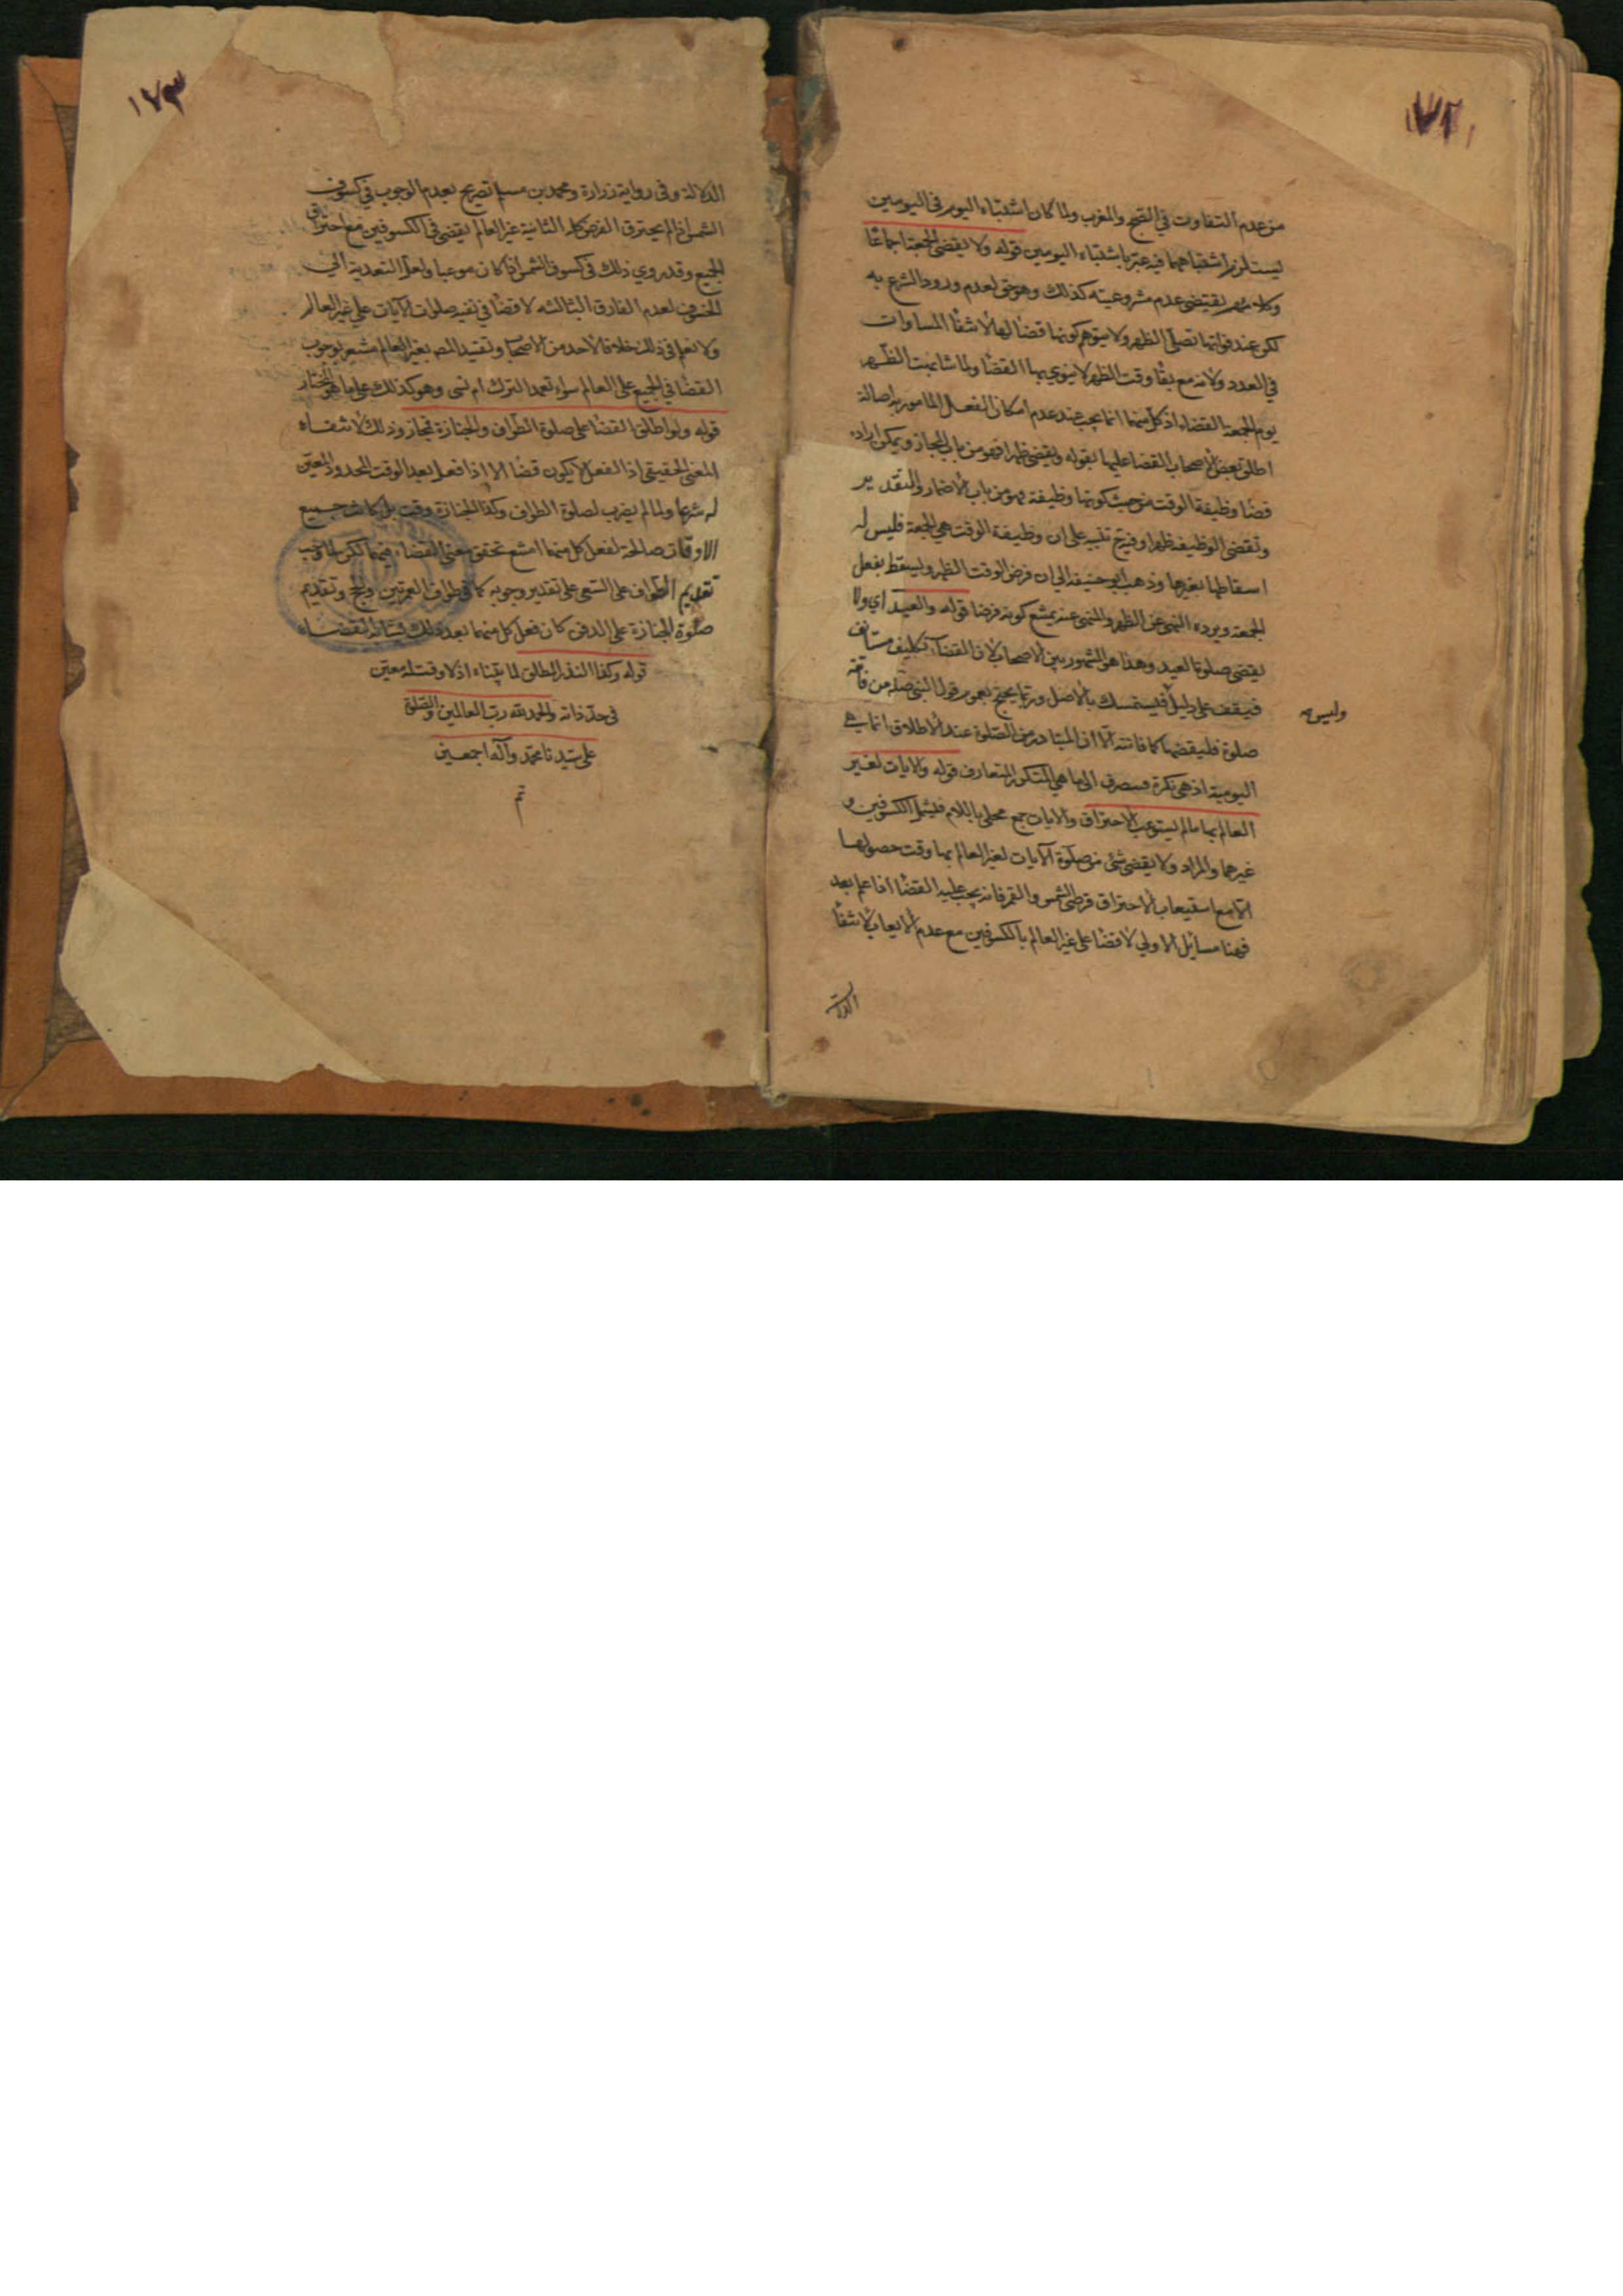 ١٧٢
من عدم التفاوت في الصبح والمغرب ولما كان اشتباه اليوم في اليومين
يستلزم اشتباههما فيه عبر باشتباه اليومين قوله ولا يقضى الجمعة اجماعا
وكلامهم يقتضى عدم مشروعيته كذلك وهو حق لعدم ورود الشرع به
لكن عند فواتها تصلى الظهر ولا يتوهم كونها قضا لها لانتفا المساوات
في العدد ولانه مع بقا وقت الظهر لا ينوي بها القضا ولما شابهت الظهر
يوم الجمعة القضاء اذ كل منهما انما يجب عند عدم امكان الفعل المامور به اصالة
اطلق بعض الاصحاب القضا عليها بقوله ويقضى ظهرا فهو من باب المجاز ويمكن ارادة
قضا وظيفة الوقت من حيث كونها وظيفة فهو من باب الاضمار والتقدير
وتقضى الوظيفه ظهرا وفيه تنبيه على ان وظيفة الوقت هي الجمعة فليس له
اسقاطها بغيرها وذهب ابو حنيفه الى ان فرض الوقت الظهر ويسقط بفعل
الجمعة ويرده النهى عن الظهر والمنهى عنه يمتنع كونه فرضا قوله والعيد اي ولا
يقضى صلوة العيد وهذا هو المشهور بين الاصحاب لان القضاء تكليف مستانف
فيقف على دليل فليتمسك بالاصل وربما يحتج بعموم قول النبي صله من فاتته
وليس مه
صلوة فليقضها كما فاتته الا ان المتبادر من الصلوة عند الاطلاق انما هي
اليومية اذ هى نكرة فيصرف الى ما هي المتكرر المتعارف قوله والايات لغير
العالم بها ما لم يستوعب الاحتراق والايات جمع محلى باللام فيشمل الكسوفين و
غيرهما والمراد ولا يقضى شئ من صلوة الآيات لغير العالم بها وقت حصولها
الا مع استيعاب الاحتراق قرصى الشمس والقمر فانه يجب عليه القضا اذا علم بعد
فهنا مسائل الاولي لا قضا على غير العالم بالكسوفين مع عدم الايعاب لانتفا
الدلالة
١٧٣
الدلالة وفى رواية زرارة ومحمد بن مسلم تصريح بعدم الوجوب في كسوف
الشمس اذا لم يحترق القرص كله الثانية غير العالم يقضى في الكسوفين مع احتراق
الجميع وقد روي ذلك في كسوف الشمس اذا كان موعبا ولعل التعدية الى
الخسوف لعدم الفارق الثالثه لا قضا في بقيه صلوات الآيات على غير العالم
ولا نعلم في ذلك خلافا لاحد من الاصحاب وتقييد المصـ بغير العالم مشعر بوجوب
القضا في الجميع على العالم سواء تعمد الترك ام نسى وهو كذلك على ما هو المختار
قوله ولو اطلق القضا على صلوة الطواف والجنازة فمجاز وذلك لانتفاء
المعنى الحقيقى اذ الفعل لا يكون قضا الا اذا فعل بعد الوقت المحدود المعين
له شرعا ولما لم يضرب لصلوة الطواف وكذا الجنازة وقت بل كانت جميع
الاوقات صالحة لفعل كل منهما امتنع تحقق معنى القضاء فيهما لكن لما وجب
تقديم الطواف على السعى على تقدير وجوبه كما في طواف العمرتين والحج وتقديم
صلوة الجنازة على الدفن كان فعل كل منهما بعد ذلك مشابه لقضاء
قوله وكذا النذر المطلق لما بيناه اذ لا وقت له معين
فى حد ذاته والحمد لله رب العالمين والصلوة
على سيدنا محمد وآله اجمعين
تم